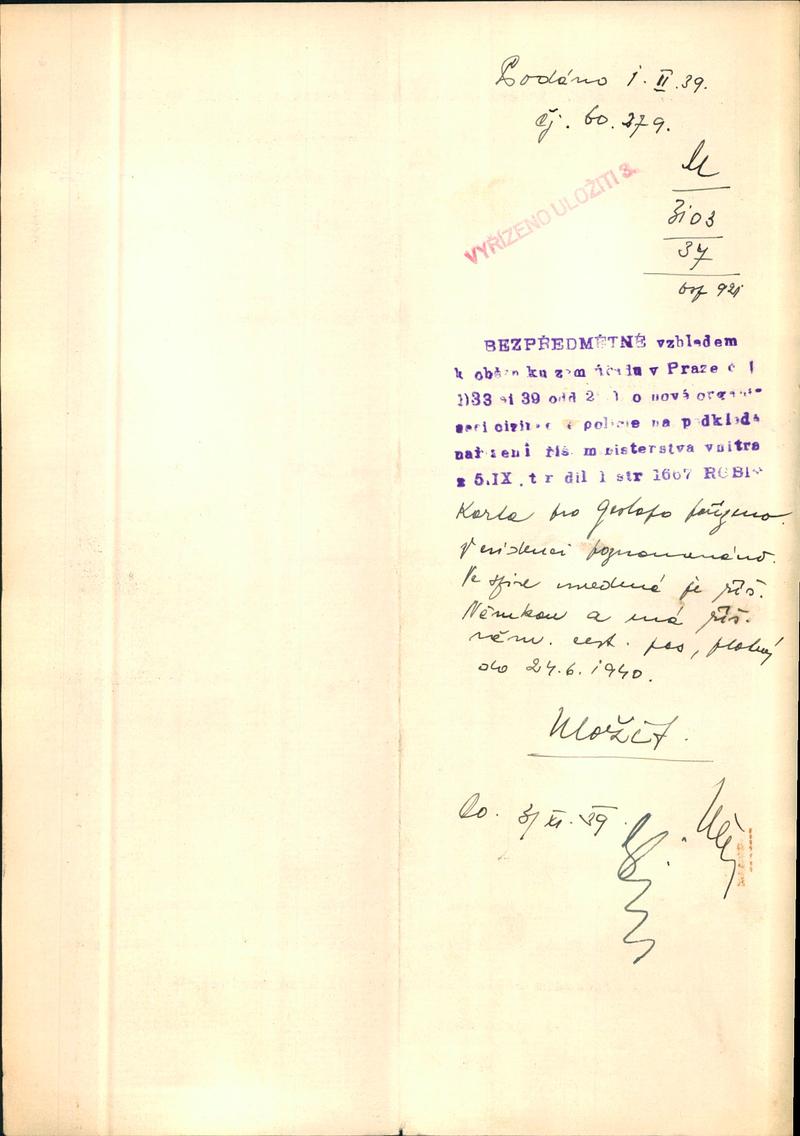 Podáno 1. II. 39.
čj. 60.279.
M
3103
37
VYŘÍZENO ULOŽITI 3.
BEZPŘEDMĚTNÉ vzhledem
k oběžníku zem úřadu v Praze č 1
1933 ai 39 odd 2 o nové organi-
saci civilní policie na podkladě
nařízení říš ministerstva vnitra
z 5.IX. t r díl I str 1667 RGBl
Karta pro Gestapo pořízena.
V evidenci poznamenáno.
Ve spise uvedená je říš.
Němkou a má říš.
něm. cest. pas, platný
do 24.6.1940.
Uložit.
39